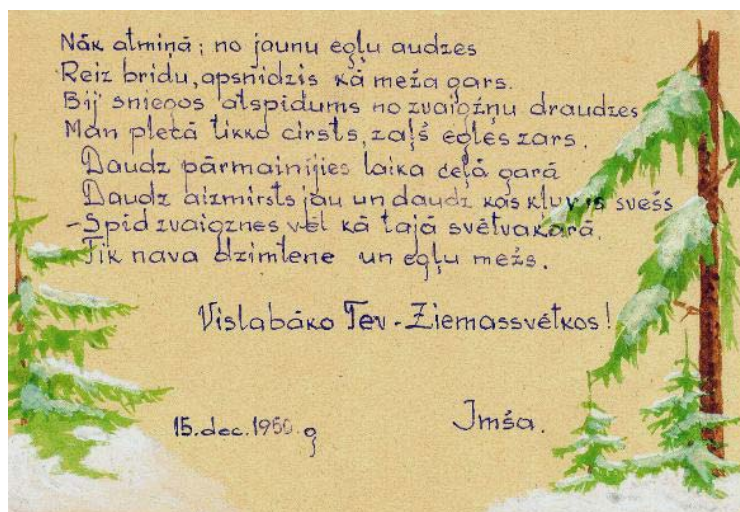 Nāk atmiņā; no jaunu egļu audzes
Reiz bridu, apsnidzis kā meža gars.
Bij sniegos atspidums no zvaigžņu draudzes
Man plecā tikko cirsts, zaļš egles zars.
Daudz pārmainijies laika ceļā garā
Daudz aizmirsts jau un daudz kas kļuvis svešs
-Spid zvaigznes vēl kā tajā svētvakarā,
Tik nava dzimtene un egļu mežs.
Vislabāko Tev - Ziemassvētkos!
15. dec. 1950. g
Imša.